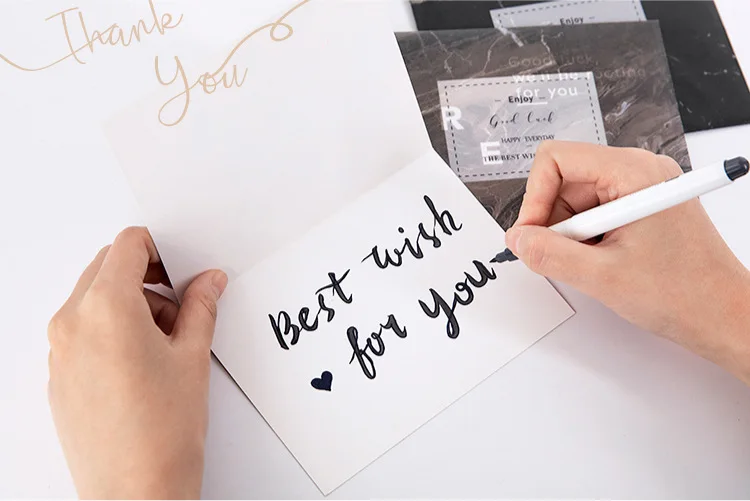 Thank
You
Enjoy
Good luck,
we'll be rooting
for you
Enjoy
Good Luck
HAPPY EVERYDAY
THE BEST WIS
R
E
Best wish
for you